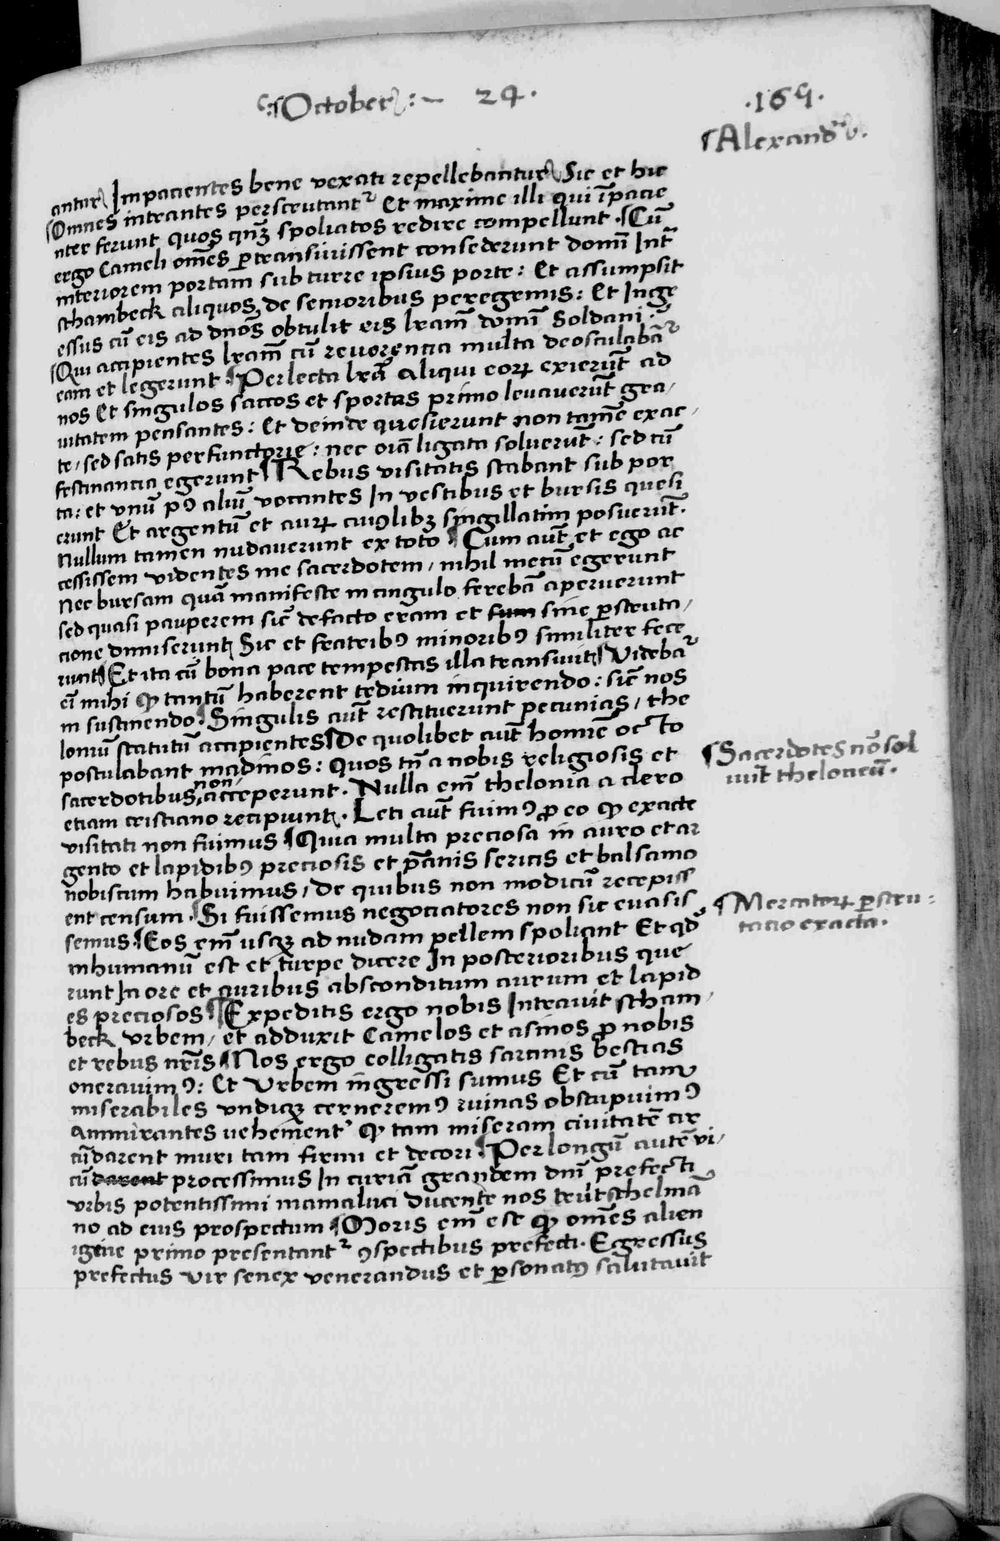 October 24.
.169.
Alexandr̃.
antur Impacientes bene vexati repellebantur Sic et hic
Omnes intrantes perscrutantr Et maxime illi qui ĩpacie
nter ferunt quos qñqȝ spoliatos redire compellunt. Cũ
ergo Cameli omẽs ptransivissent consederunt domĩ Int̃
interiorem portam sub turre ipsius porte: Et assumpsit
schambeck aliquos de senioribus peregrinis: Et Ingr
essus cũ eis ad dños obtulit eis lram̃ domĩ Soldani.
Qui accipientes lram̃ cũ reverentia multa deosculabãr
eam et legerunt. Perlecta lrã aliqui eorꝝ exierũt ad
nos Et singulos saccos et sportas primo levaverũt gra/
vitatem pensantes: Et deinde quesierunt non tamẽ exac/
te, sed satis perfunctorie: nec oĩa ligata solverũt: sed cũ
festinantia egerunt Rebus visitatis stabant sub por
ta: et vnũ pꝰ aliũ vocantes In vestibus et bursis quesi
erunt Et argentũ et aurꝝ cuiꝰlibȝ singillatim posuerũt.
Nullum tamen nudaverunt ex toto Cum aũt et ego ac
cessissem videntes me sacerdotem, nihil mecũ egerunt
Nec bursam quã manifeste in cingulo ferebã aperuerunt
sed quasi pauperem sic̃ de facto eram et sum sine pscruta/
cione dimiserunt Sic et fratribꝰ minoribꝰ similiter fece
runt Et ita cũ bona pace tempestas illa transivit Videbar
em̃ mihi ꝙ tantũ haberent tedium inquirendo: sic̃ nos
in sustinendo. Singulis aũt restituerunt pecunias, the
loniũ statutũ accipientes De quolibet aũt homĩe octo
postulabant madinos: Quos tñ a nobis religiosis et
sacerdotibus, non acceperunt. Nulla em̃ thelonia a clero
etiam cristiano recipiunt. Leti aũt fuimꝰ ꝓ eo ꝙ exacte
visitati non fuimus Quia multa preciosa in auro et ar
gento et lapidibꝰ preciosis et pãnis sericis et balsamo
nobiscum habuimus, de quibus non modicũ recepiss
ent censum. Si fuissemus negociatores non sic evasis
semus. Eos em̃ usqȝ ad nudam pellem spoliant Et qd
inhumanũ est et turpe dicere In posterioribus que
runt In ore et auribus absconditum aurum et lapid
es preciosos Expeditis ergo nobis Intravit scham/
beck vrbem, et adduxit Camelos et asinos ꝓ nobis
et rebus nr̃is Nos ergo colligatis sarcinis bestias
oneravimꝰ: Et Vrbem ingressi sumus Et cũ tam
miserabiles vndiqȝ cerneremꝰ ruinas obstupuimꝰ
Ammirantes vehement' ꝙ tam miseram civitatẽ cir
cũdarent muri tam firmi et decori Per longũ autẽ vi/
cũ darent processimus In curiã grandem dñi prefecti
vrbis potentissimi mamaluci ducente nos trutschelmã
no ad eius prospectum Moris em̃ est ꝙ omẽs alien
igine primo presentantr ꝯspectibus prefecti. Egressus
prefectus vir senex venerandus et psonatꝰ salutavit
Sacerdotes nõ sol
vũt theloneũ.
Mercatorꝝ pscru:
tacio exacta.